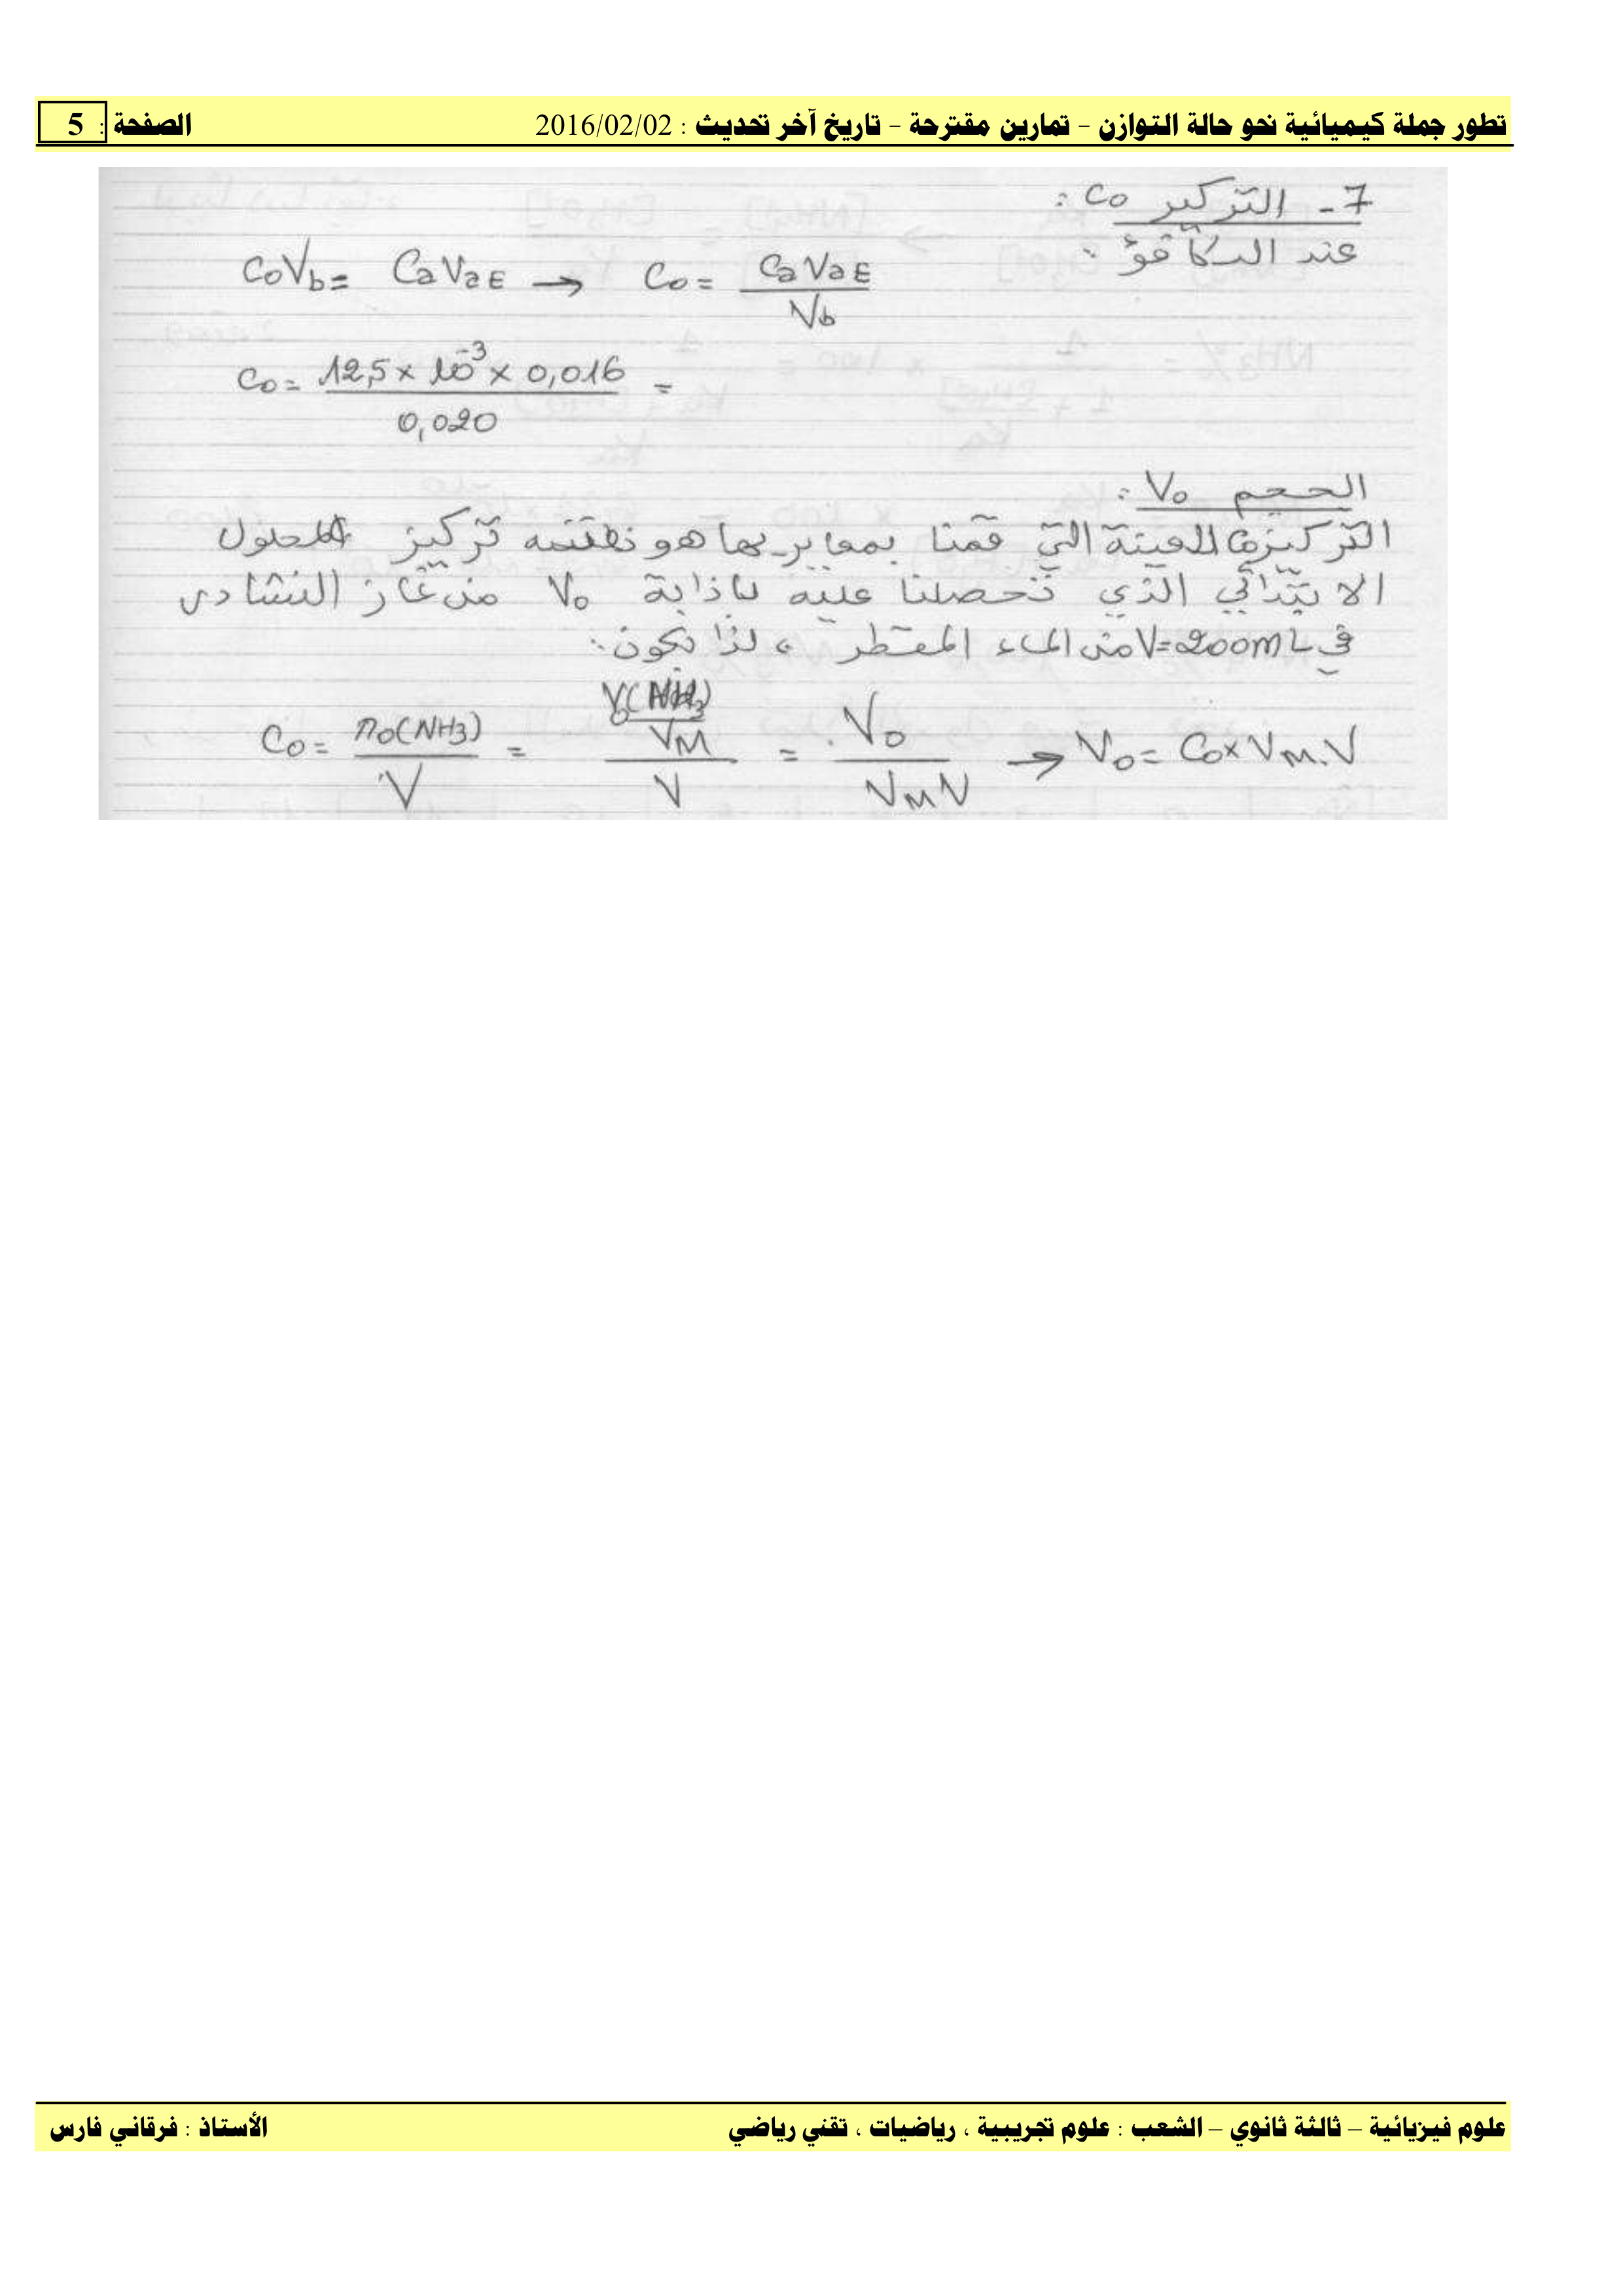 تطور جملة كيميائية نحو حالة التوازن – تمارين مقترحة – تاريخ آخر تحديث : 2016/02/02 الصفحة : 5
7 - التركيز C0 :
عند التكافؤ :
C0Vb = CaVaE → C0 = CaVaE / Vb
C0 = 12,5 × 10⁻³ × 0,016 / 0,020 =
الحجم V0 :
التركيز للعينة التي قمنا بمعايرتها هو نفسه تركيز المحلول
الابتدائي الذي تحصلنا عليه بإذابة V0 من غاز النشادر
في V=200mL من الماء المقطر ، لذا يكون :
C0 = n0(NH3) / V = (V0(NH3) / VM) / V = V0 / VM V → V0 = C0 × VM . V
علوم فيزيائية – ثالثة ثانوي – الشعب : علوم تجريبية ، رياضيات ، تقني رياضي الأستاذ : فرقاني فارس